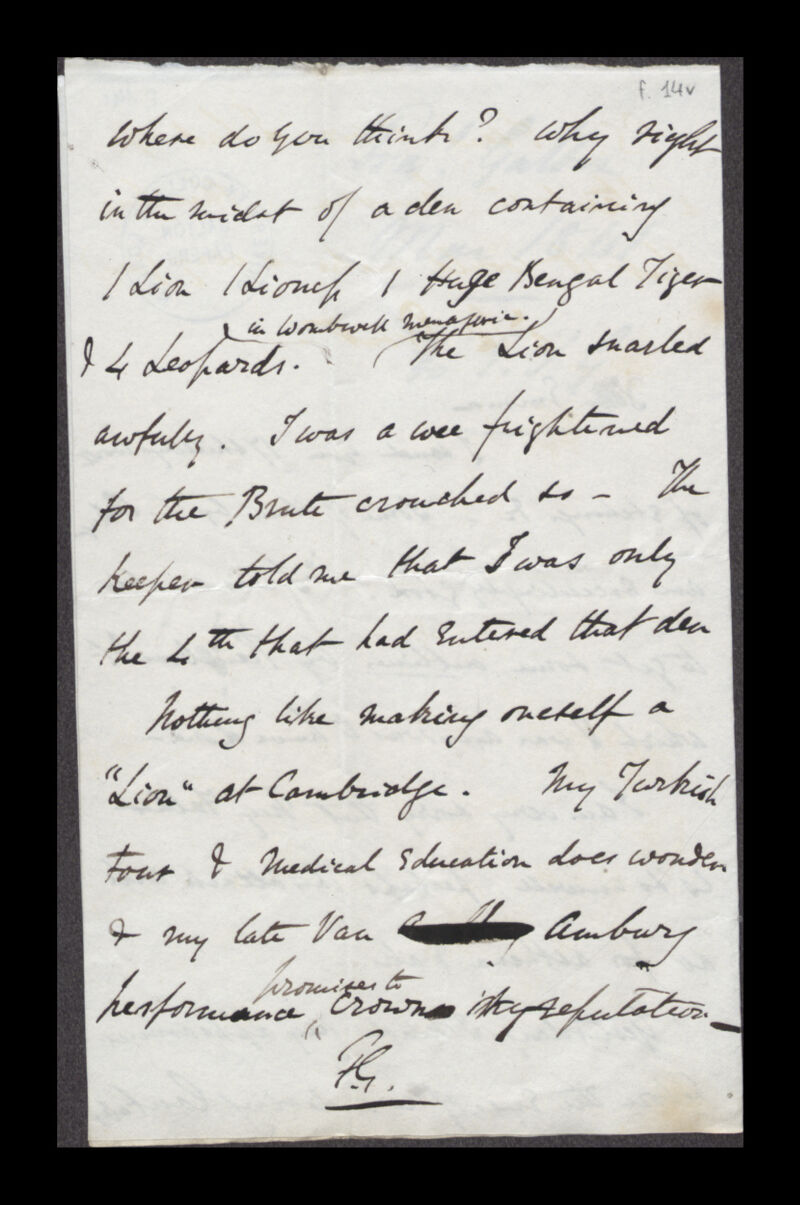 f. 14v
where do you think? Why right
in the midst of a den containing
1 Lion 1 Lioness 1 Huge Bengal Tiger
in Wombwell menagerie.
& 4 Leopards. The Lion snarled
awfully. I was a wee frightened
for the Brute crouched so – The
keeper told me that I was only
the 4th that had entered that den
Nothing like making oneself a
"Lion" at Cambridge. My Turkish
Tour & Medical Education does wonders
& my late Van Amburg
promises to
performance crown my reputation
F.G.